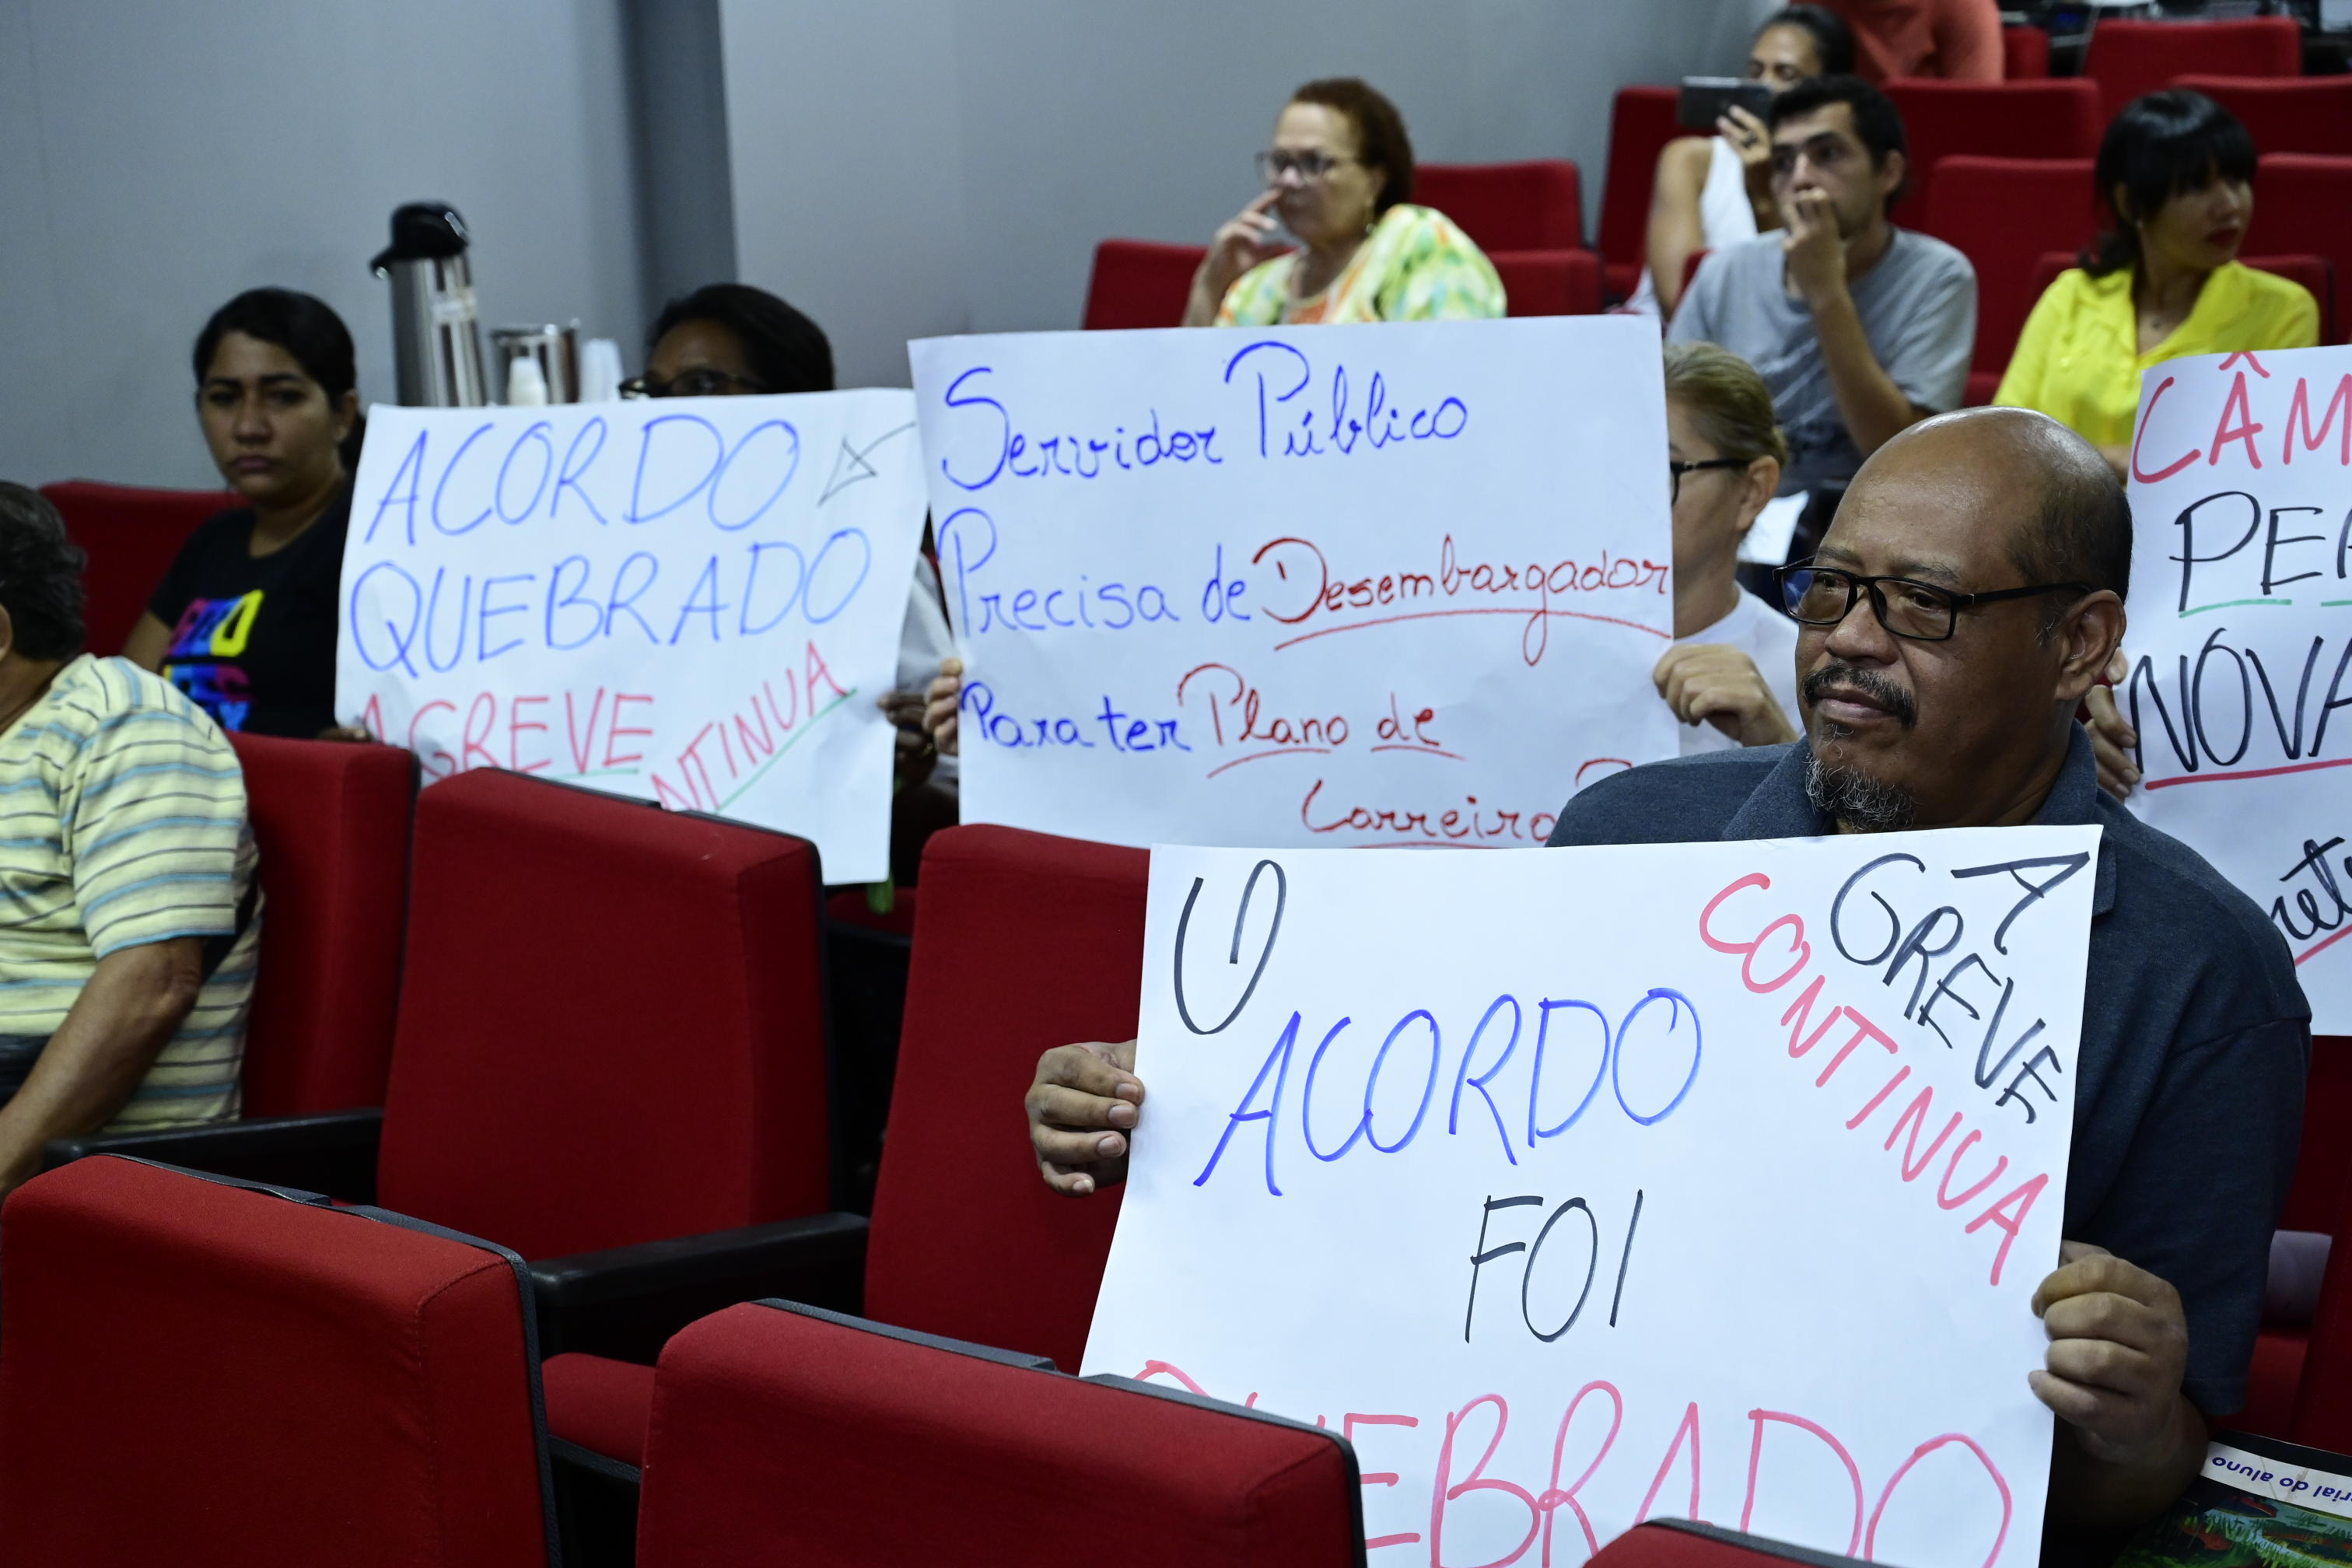 ACORDO
QUEBRADO
A GREVE
NTINUA
Servidor Público
Precisa de Desembargador
Para ter Plano de
Carreira
O
ACORDO
FOI
QUEBRADO
A
GREVE
CONTINUA
CÂM
PE
NOVA
rial do aluno